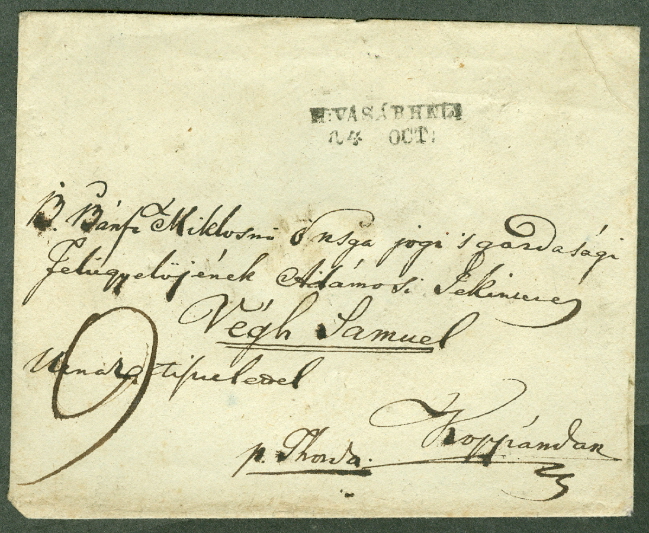 VÁSÁRHELY
24 OCT.
B. Bánfi Miklosné ő nsga jogi 's gazdasági
Felügyelőjének Adámosi Tekintetes
Végh Samuel
Urnak tisztelettel
9
Koppándon
p. Thorda.